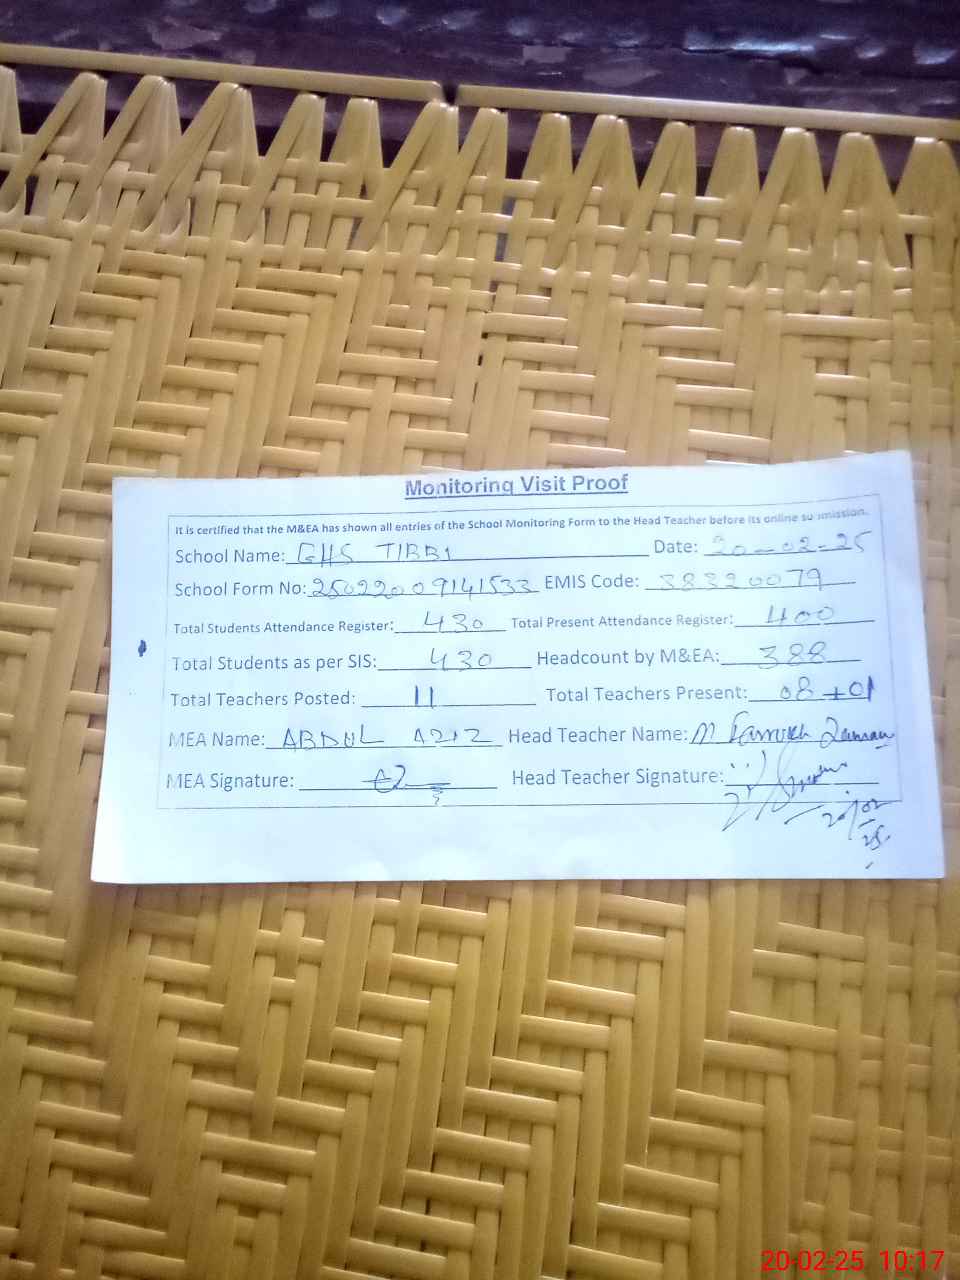 Monitoring Visit Proof
It is certified that the M&EA has shown all entries of the School Monitoring Form to the Head Teacher before its online su mission.
School Name: GHS TIBBI Date: 20-02-25
School Form No: 25022009141533 EMIS Code: 38320079
Total Students Attendance Register: 430 Total Present Attendance Register: 400
Total Students as per SIS: 430 Headcount by M&EA: 388
Total Teachers Posted: 11 Total Teachers Present: 08+01
MEA Name: ABDUL AZIZ Head Teacher Name: M Farrukh Zaman
MEA Signature: Head Teacher Signature:
20/02
25
20-02-25 10:17